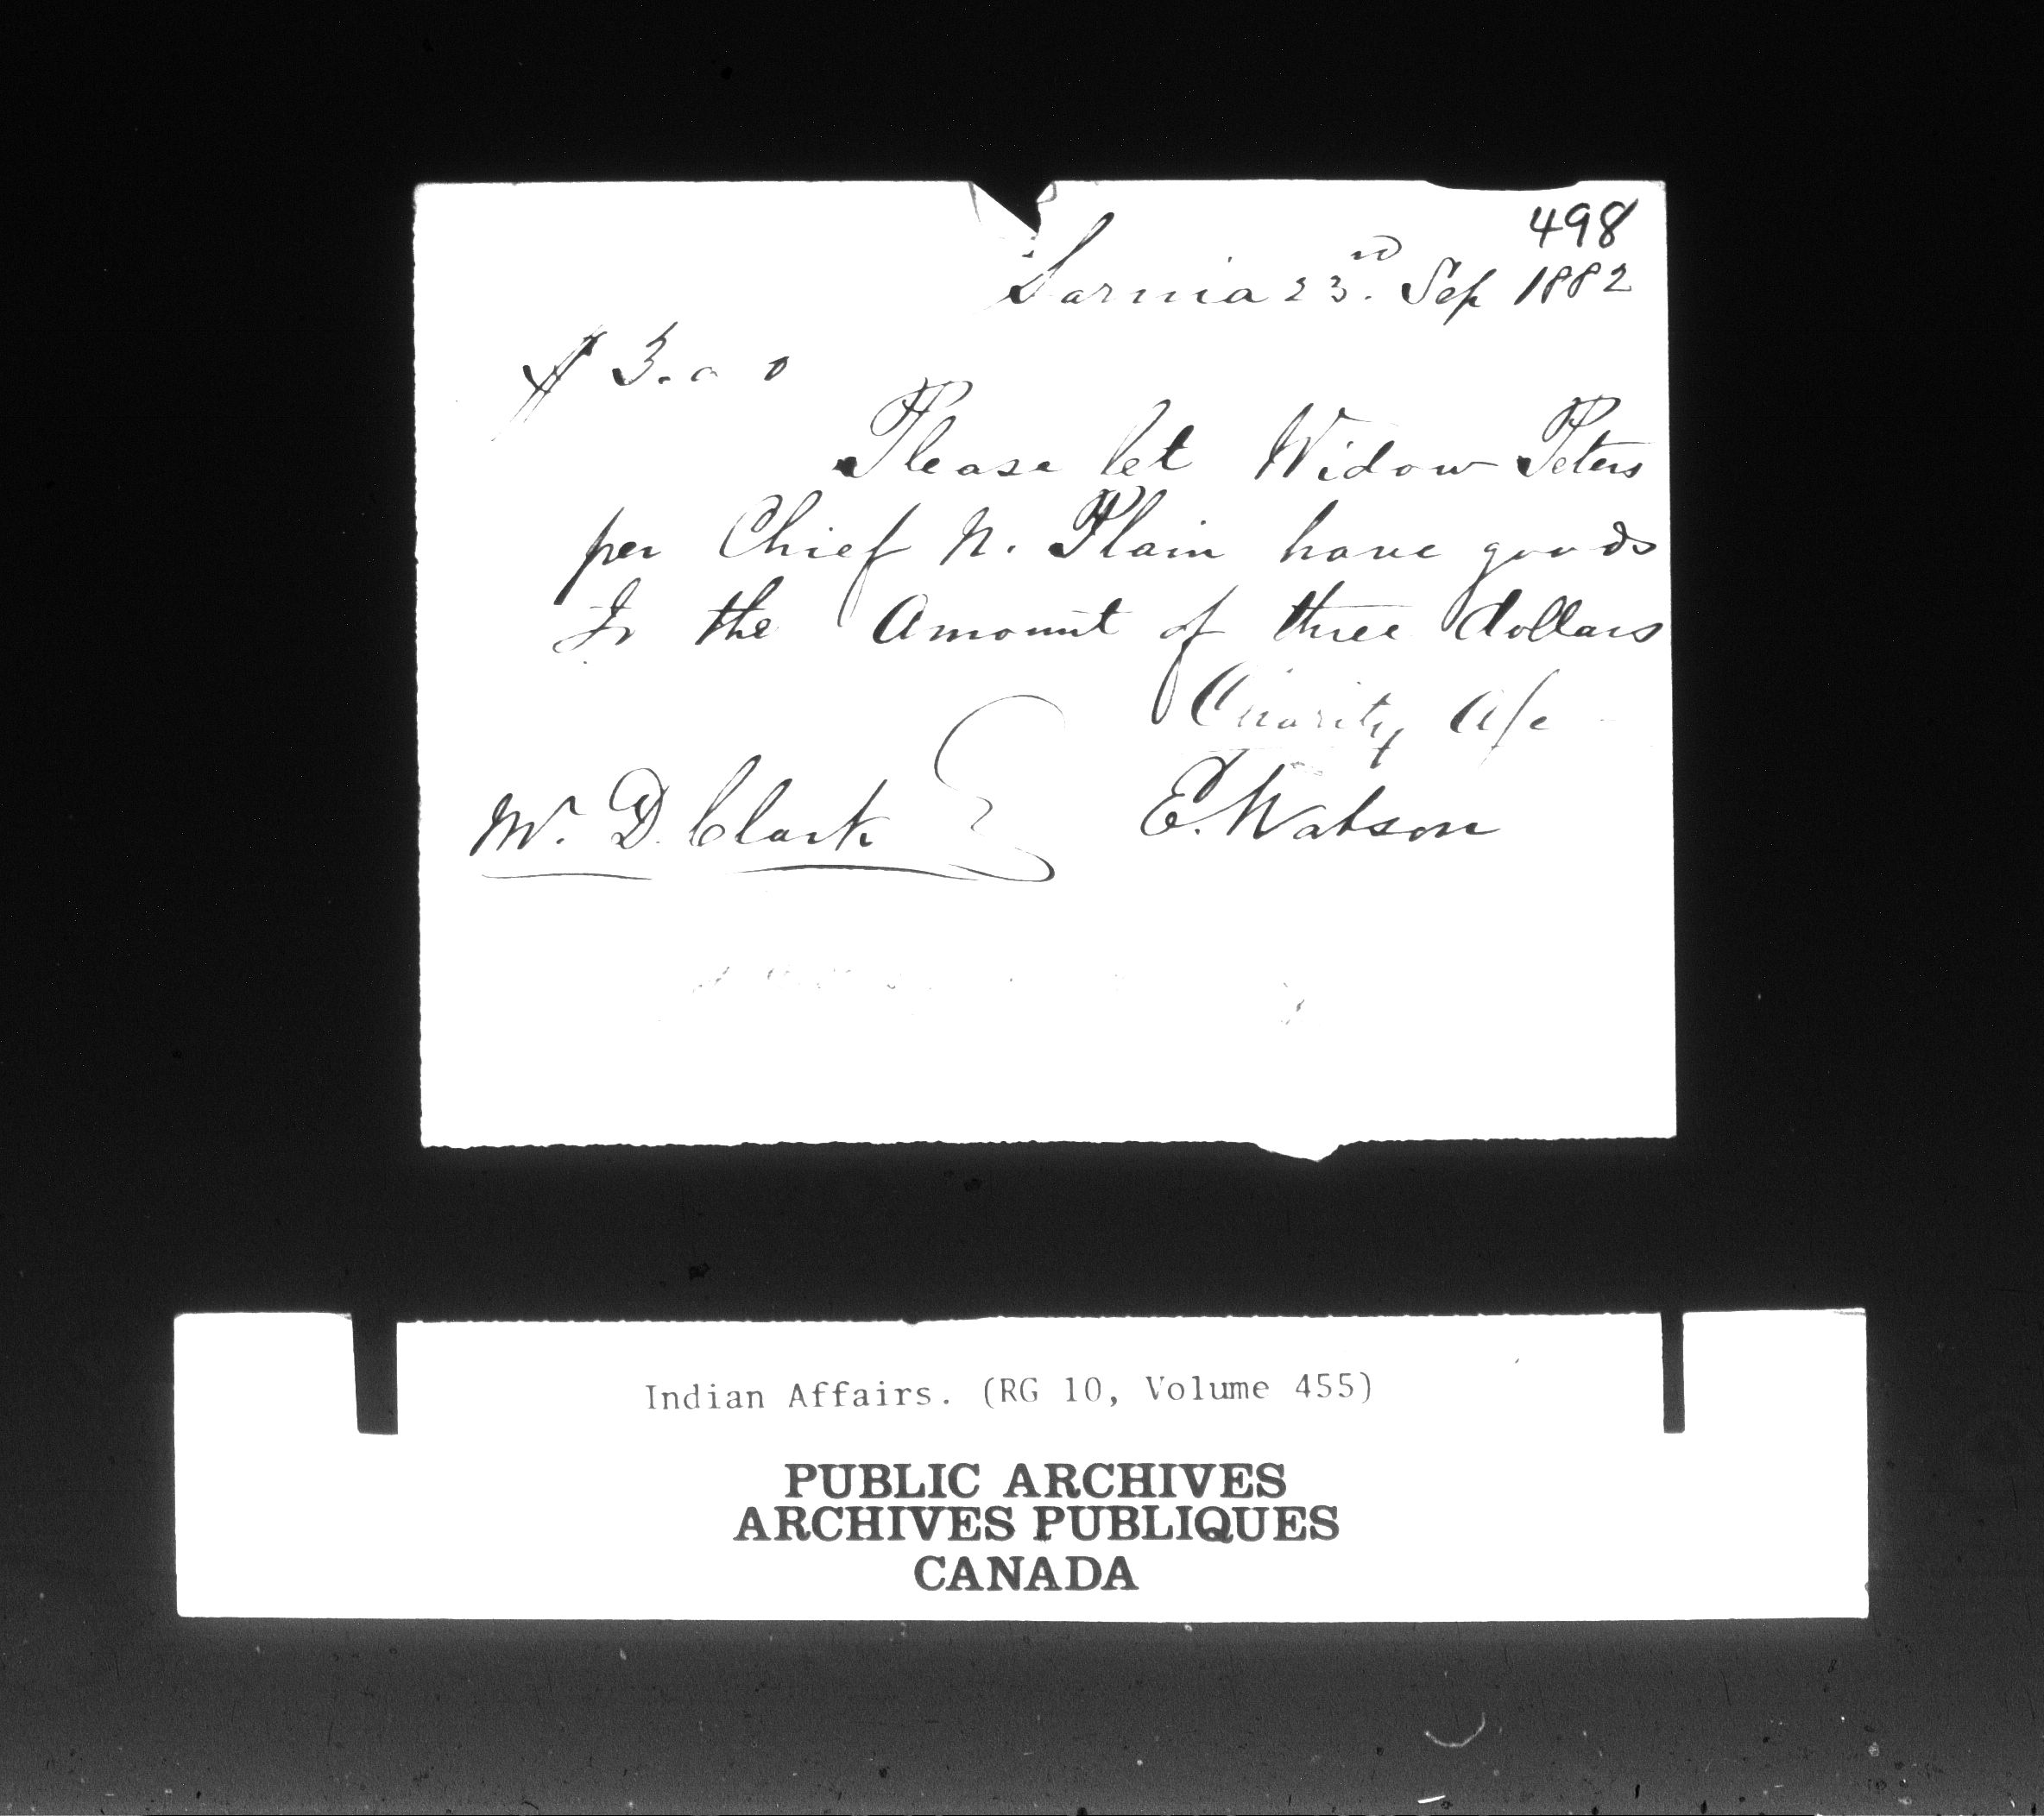 498
Sarnia 23rd. Sep 1882
$3.00
Please let Widow Peters
per Chief N. Plain have goods
To the Amount of three dollars
Charity A/c
Mr. D. Clark
E. Watson
Indian Affairs. (RG 10, Volume 455)
PUBLIC ARCHIVES
ARCHIVES PUBLIQUES
CANADA